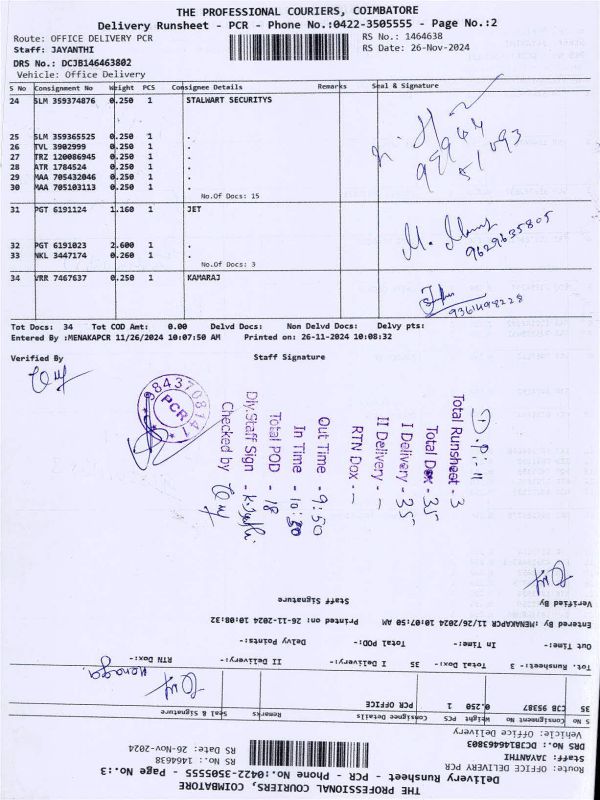 THE PROFESSIONAL COURIERS, COIMBATORE
Delivery Runsheet - PCR - Phone No.:0422-3505555 - Page No.:2
Route: OFFICE DELIVERY PCR
RS No.: 1464638
Staff: JAYANTHI
RS Date: 26-Nov-2024
DRS No.: DCJB146463802
Vehicle: Office Delivery
S No Consignment No Weight PCS Consignee Details Remarks Seal & Signature
24 SLM 359374876 0.250 1 STALWART SECURITYS
25 SLM 359365525 0.250 1 .
26 TVL 3902999 0.250 1 .
27 TRZ 120086945 0.250 1 .
28 ATR 1784524 0.250 1 .
29 MAA 705432046 0.250 1 .
30 MAA 705103113 0.250 1 .
No.Of Docs: 15
31 PGT 6191124 1.160 1 JET
9629635805
32 PGT 6191023 2.600 1 .
33 NKL 3447174 0.260 1 .
No.Of Docs: 3
34 VRR 7467637 0.250 1 KAMARAJ
9361498228
Tot Docs: 34 Tot COD Amt: 0.00 Delvd Docs: Non Delvd Docs: Delvy pts:
Entered By :MENAKAPCR 11/26/2024 10:07:50 AM Printed on: 26-11-2024 10:08:32
Verified By Staff Signature
9843708147
PCR
Total Runsheet - 3
Total Dox - 35
I Delivery - 35
II Delivery - -
RTN Dox - -
Out Time - 9:50
In Time - 10:30
Total POD - 18
Dly.Staff Sign -
Checked by
THE PROFESSIONAL COURIERS, COIMBATORE
Delivery Runsheet - PCR - Phone No.:0422-3505555 - Page No.:3
Route: OFFICE DELIVERY PCR
RS No.: 1464638
Staff: JAYANTHI
RS Date: 26-Nov-2024
DRS No.: DCJB146463803
Vehicle: Office Delivery
S No Consignment No Weight PCS Consignee Details Remarks Seal & Signature
35 CJB 95387 0.250 1 PCR OFFICE
Menaga
Tot. Runsheet:- 3 Total Dox:- 35 I Delivery:- II Delivery:- RTN Dox:-
Out Time:- In Time:- Total POD:- Delvy Points:-
Entered By :MENAKAPCR 11/26/2024 10:07:50 AM Printed on: 26-11-2024 10:08:32
Verified By Staff Signature